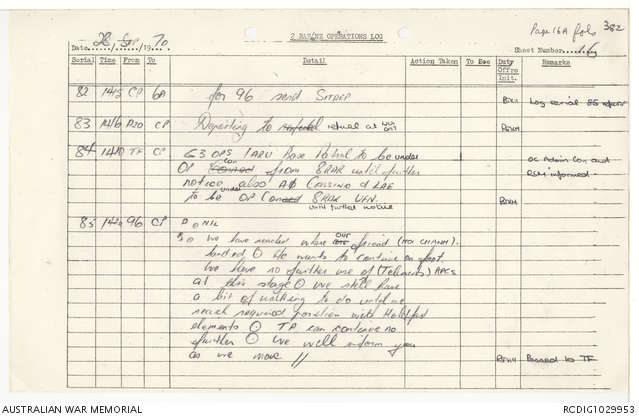 Page 16A folo 382
2 RAR/NZ OPERATIONS LOG
Date 28 / SEP / 1970
Sheet Number
Serial Time From To Detail Action Taken To See Duty Offrs Init. Remarks
82 1415 CP 6A for 96 send SITREP Log serial 85 refers
83 1416 P20 CP Departing to refuel at
84 TF CP G3 OPS 1 ARU Base Patrol to be under
OP CON from 8RAR until further
notice also A Crossing & LAE
to be under OP Con 8RAR UFN.
until further notice
OC Admin Coy and
RSM informed
85 1420 96 CP D O NIL
We have reached where our friend (HOI CHANH).
landed O He wants to continue on foot.
We have no further use of (Telemers) APCS
at this stage O We still have
a bit of walking to do until we
reach required position with Holdfast
elements O TP can continue no
further O We will inform you
as we move //
Passed to TF
AUSTRALIAN WAR MEMORIAL
RCDIG1029953